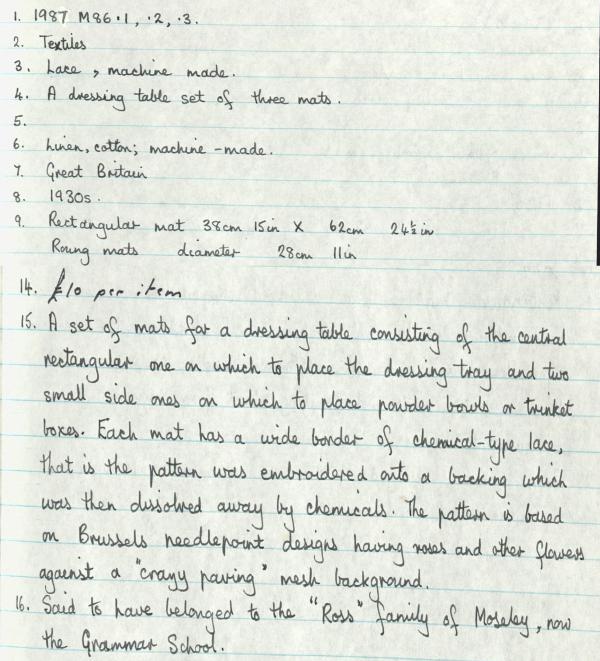 1. 1987 M86·1, ·2, ·3.
2. Textiles
3. Lace, machine made.
4. A dressing table set of three mats.
5.
6. Linen, cotton; machine-made.
7. Great Britain
8. 1930s.
9. Rectangular mat 38cm 15in X 62cm 24½in
Roung mats diameter 28cm 11in
14. £10 per item
15. A set of mats for a dressing table consisting of the central
rectangular one on which to place the dressing tray and two
small side ones on which to place powder bowls or trinket
boxes. Each mat has a wide border of chemical-type lace,
that is the pattern was embroidered onto a backing which
was then dissolved away by chemicals. The pattern is based
on Brussels needlepoint designs having roses and other flowers
against a "crazy paving" mesh background.
16. Said to have belonged to the "Ross" family of Moseley, now
the Grammar School.